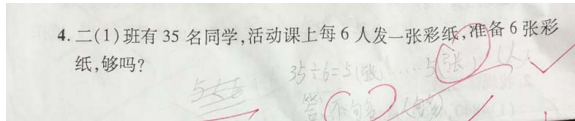 4. 二(1)班有35名同学,活动课上每6人发一张彩纸,准备6张彩
纸,够吗?
35÷6=5(张)……5(张)